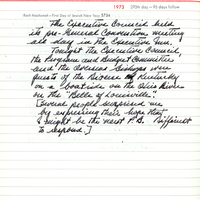 1973 270th day — 95 days follow
Rosh Hashanah • First Day of Jewish New Year 5734
The Executive Council held
its pre-General Convention meeting
all day in the Executive Inn.
Tonight the Executive Council,
the Program and Budget Committee
and the Overseas Bishops were
guests of the Diocese of Kentucky
on a boatride on the Ohio River
on the "Belle of Louisville".
[Several people surprised me
by expressing their hope that
I might be the next P.B. Difficult
to respond.]